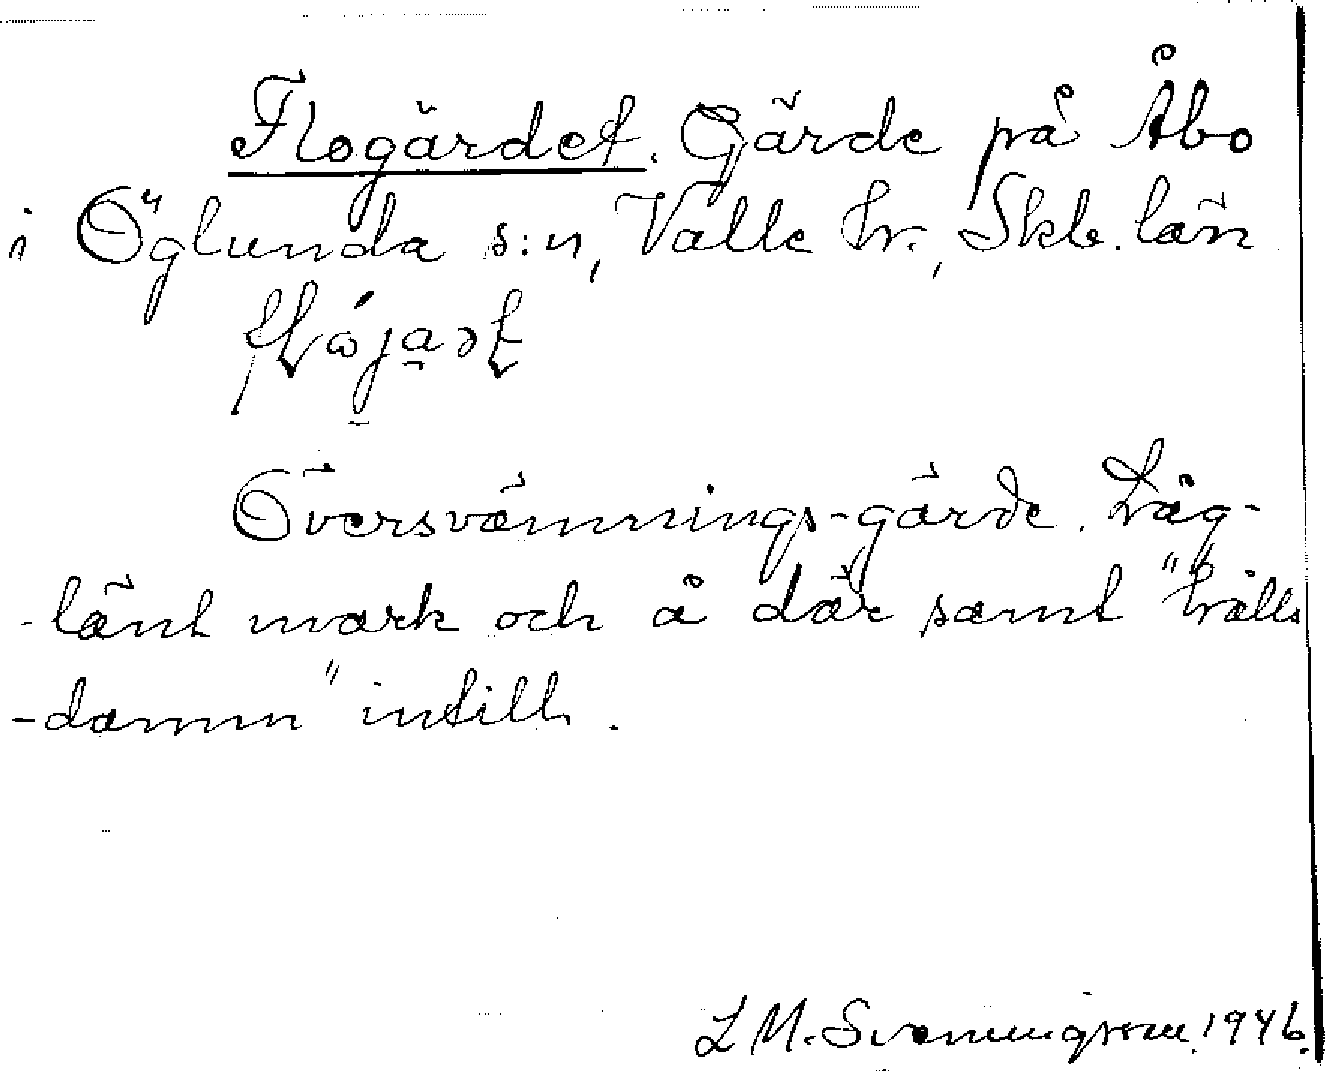 Flogärdet. Gärde på Åbo
i Öglunda s:n, Valle hr., Skb. län
Översvämnings-gärde. Låg-
-länt mark och å där samt "hålls
-damm" intill.
L M. Svenningsson. 1946.